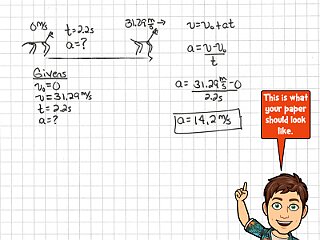 0m/s
t=2.2s
a=?
31.29m/s →
v=v₀+at
a=v-v₀
t
Givens
v₀=0
v=31.29m/s
a=?
a=31.29m/s-0
2.2s
a=14.2m/s
This is what
your paper
should look
like.